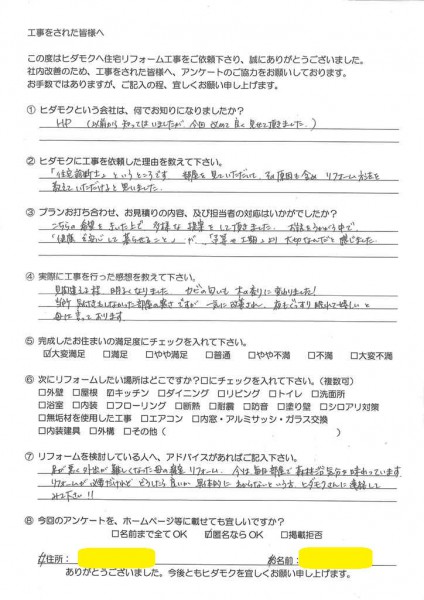 工事をされた皆様へ
この度はヒダモクへ住宅リフォーム工事をご依頼下さり、誠にありがとうございました。
社内改善のため、工事をされた皆様へ、アンケートのご協力をお願いしております。
お手数ではありますが、ご記入の程、宜しくお願い申し上げます。
① ヒダモクという会社は、何でお知りになりましたか?
HP (以前から知ってはいましたが、今回改めて良く見せて頂きました。)
② ヒダモクに工事を依頼した理由を教えて下さい。
「住宅診断士」というところです。 部屋を見ていただいて、その原因を含め リフォーム方法を
教えていただけると思いました。
③ プランお打ち合わせ、お見積りの内容、及び担当者の対応はいかがでしたか?
こちらの希望をきいた上で 多様な 提案をして頂きました。 お話をうかがう中で、
「健康で安心して暮らせること」が、「予算や工期」より 大切なんだと感じました。
④ 実際に工事を行った感想を教えて下さい。
見間違える様 明るくなりました カビの匂いも 木の香りに変わりました!
当初 気付きもしなかった部屋の寒さですが 一気に改善され、母もぐっすり眠れて嬉しい と
毎日言っております。
⑤ 完成したお住まいの満足度にチェックを入れて下さい。
☑大変満足 □満足 □やや満足 □普通 □やや不満 □不満 □大変不満
⑥ 次にリフォームしたい場所はどこですか?□にチェックを入れて下さい。(複数可)
□外壁 □屋根 ☑キッチン □ダイニング □リビング □トイレ □洗面所
□浴室 □内装 □フローリング □断熱 □耐震 □防音 □塗り壁 □シロアリ対策
□無垢材を使用した工事 □エアコン □内窓・アルミサッシ・ガラス交換
□内装建具 □外構 □その他( )
⑦ リフォームを検討している人へ、アドバイスがあればご記入下さい。
足が悪く外出が難しくなった母の寝室リフォーム。 今は毎日部屋で森林浴気分を味わっています
リフォームが必要だけれど どうしたら良いか 具体的に わからないという方、ヒダモクさんに連絡して
みて下さい!!
⑧ 今回のアンケートを、ホームページ等に載せても宜しいですか?
□名前まで全てOK ☑匿名ならOK □掲載拒否
ご住所: お名前:
ありがとうございました。今後ともヒダモクを宜しくお願い申し上げます。